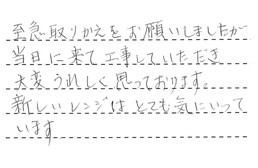 至急取りかえをお願いしましたが
当日に来て工事していただき
大変うれしく思っております。
新しいレンジはとても気にいって
います